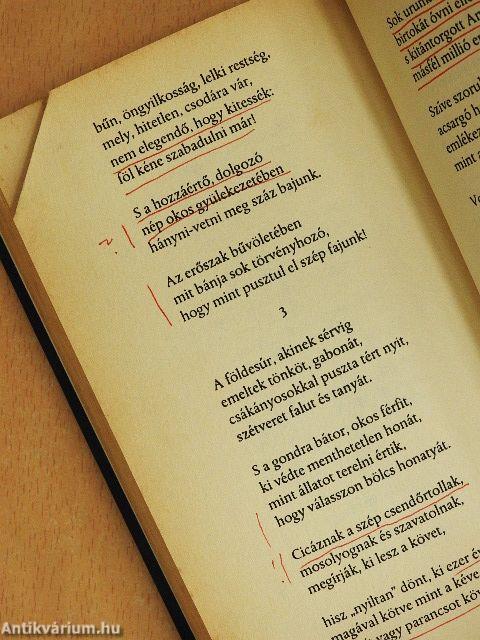 bűn, öngyilkosság, lelki restség,
mely, hitetlen, csodára vár,
nem elegendő, hogy kitessék:
föl kéne szabadulni már!
S a hozzáértő, dolgozó
nép okos gyülekezetében
hányni-vetni meg száz bajunk.
Az erőszak bűvöletében
mit bánja sok törvényhozó,
hogy mint pusztul el szép fajunk!
3
A földesúr, akinek sérvig
emeltek tönköt, gabonát,
csákányosokkal puszta tért nyit,
szétveret falut és tanyát.
S a gondra bátor, okos férfit,
ki védte menthetetlen honát,
mint állatot terelni értik,
hogy válasszon bölcs honatyát.
Cicáznak a szép csendőrtollak,
mosolyognak és szavatolnak,
megírják, ki lesz a követ,
hisz „nyiltan" dönt, ki ezer
magával kötve mint a kéve
vagy parancsot
Sok
birtokát óvni
s kitántorgott
másfél millió
Szíve
acsargó
mint a
Antikvárium.hu